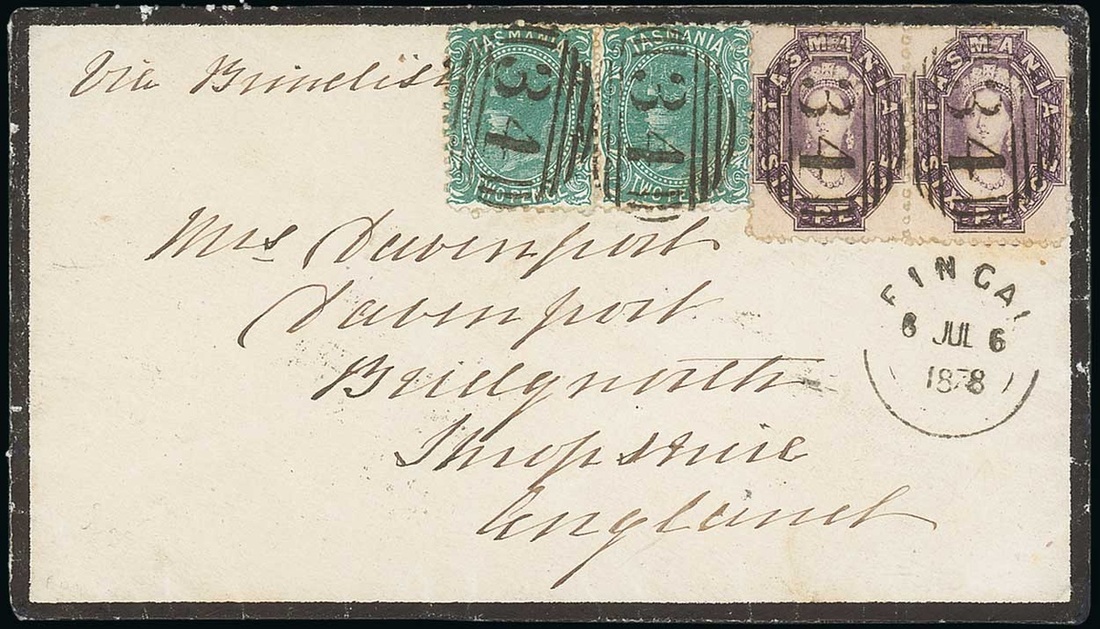 Via Brindisi
TASMANIA
TASMANIA
TASMANIA
TASMANIA
34
34
34
34
TWO PEN
TWO PE
SIX PENCE
SIX PENCE
Mrs Davenport
Davenport
Bridgnorth
Shropshire
England
FINGAL
6 JUL 6
1878